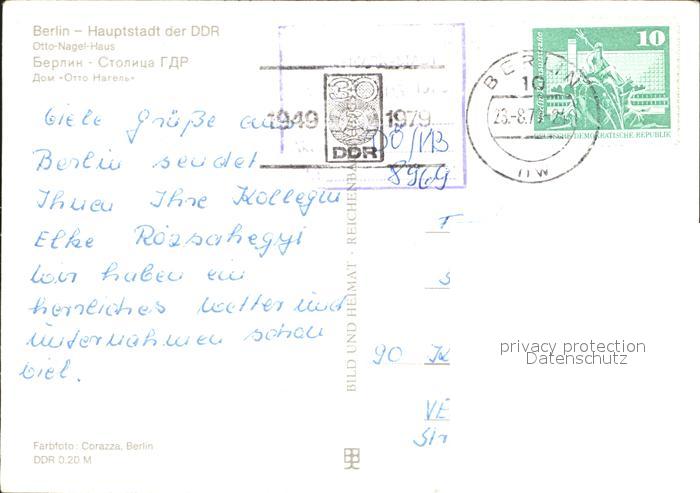 Berlin – Hauptstadt der DDR
Otto-Nagel-Haus
Берлин - Столица ГДР
Дом «Отто Нагель»
Viele Grüße aus
Berlin sendet
Ihnen Ihre Kollegin
Elke Rózsahegyi
Wir haben ein
herrliches Wetter und
unternahmen schon
viel.
Farbfoto: Corazza, Berlin
DDR 0.20 M
BILD UND HEIMAT · REICHENBA
1949 30 1979
DDR
8969
BERLIN
10
nw
10
DEUTSCHE DEMOKRATISCHE REPUBLIK
T
S
90 K
VE
Str
privacy protection
Datenschutz